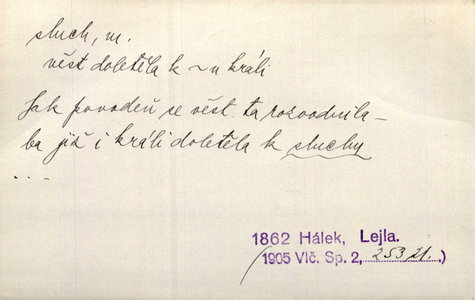 sluch, m.
věst doletěla k ~u králi
Jak povodeň se věst ta rozvodnila –
ba již i králi doletěla k sluchu
...
1862 Hálek, Lejla.
(1905 Vlč. Sp. 2, 253, 21.)